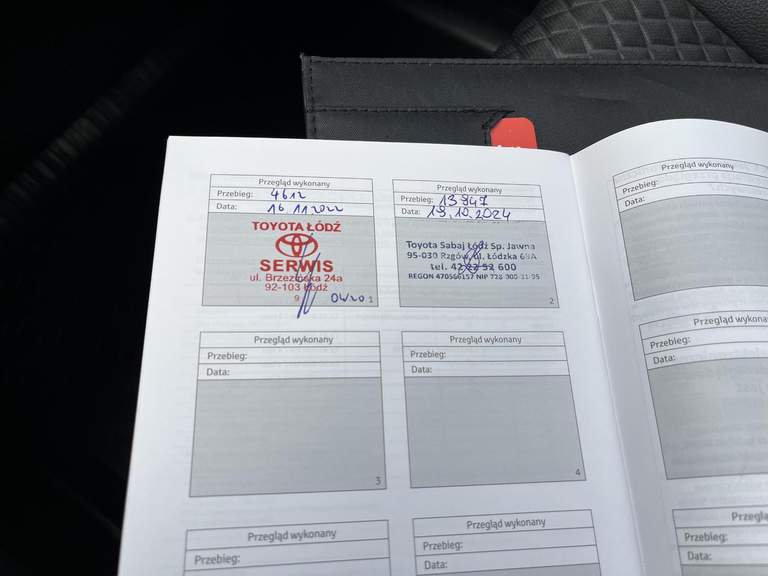 Przegląd wykonany
Przebieg: 4612
Data: 16.11 2022
TOYOTA ŁÓDŹ
SERWIS
ul. Brzezińska 24a
92-103 Łódź
9
1
Przegląd wykonany
Przebieg: 13947
Data: 19.10.2024
Toyota Sabaj Łódź Sp. Jawna
95-030 Rzgów, ul. Łódzka 69A
tel. 42 22 52 600
2
Przegląd wykonany
Przebieg:
Data:
3
Przegląd wykonany
Przebieg:
Data:
4
Przegląd wykonany
Przebieg:
Przegląd wykonany
Przebieg:
Data:
Przegląd wykonany
Przebieg:
Data:
Przegląd wykona
Przebieg:
Data:
Przeglą
Przebieg:
Data: